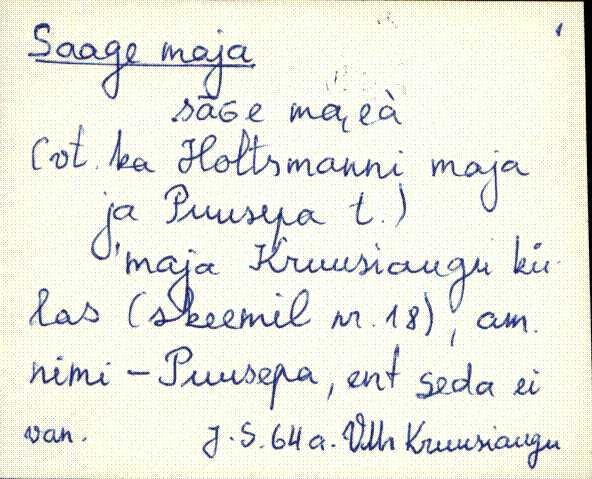 Saage maja 1
sāGe ma,eà
(vt. ka Holtsmanni maja
ja Puusepa t.)
'maja Kruusiaugu kü-
las (skeemil nr. 18), am.
nimi – Puusepa, ent seda ei
van. J. S. 64 a. Kruusiaugu